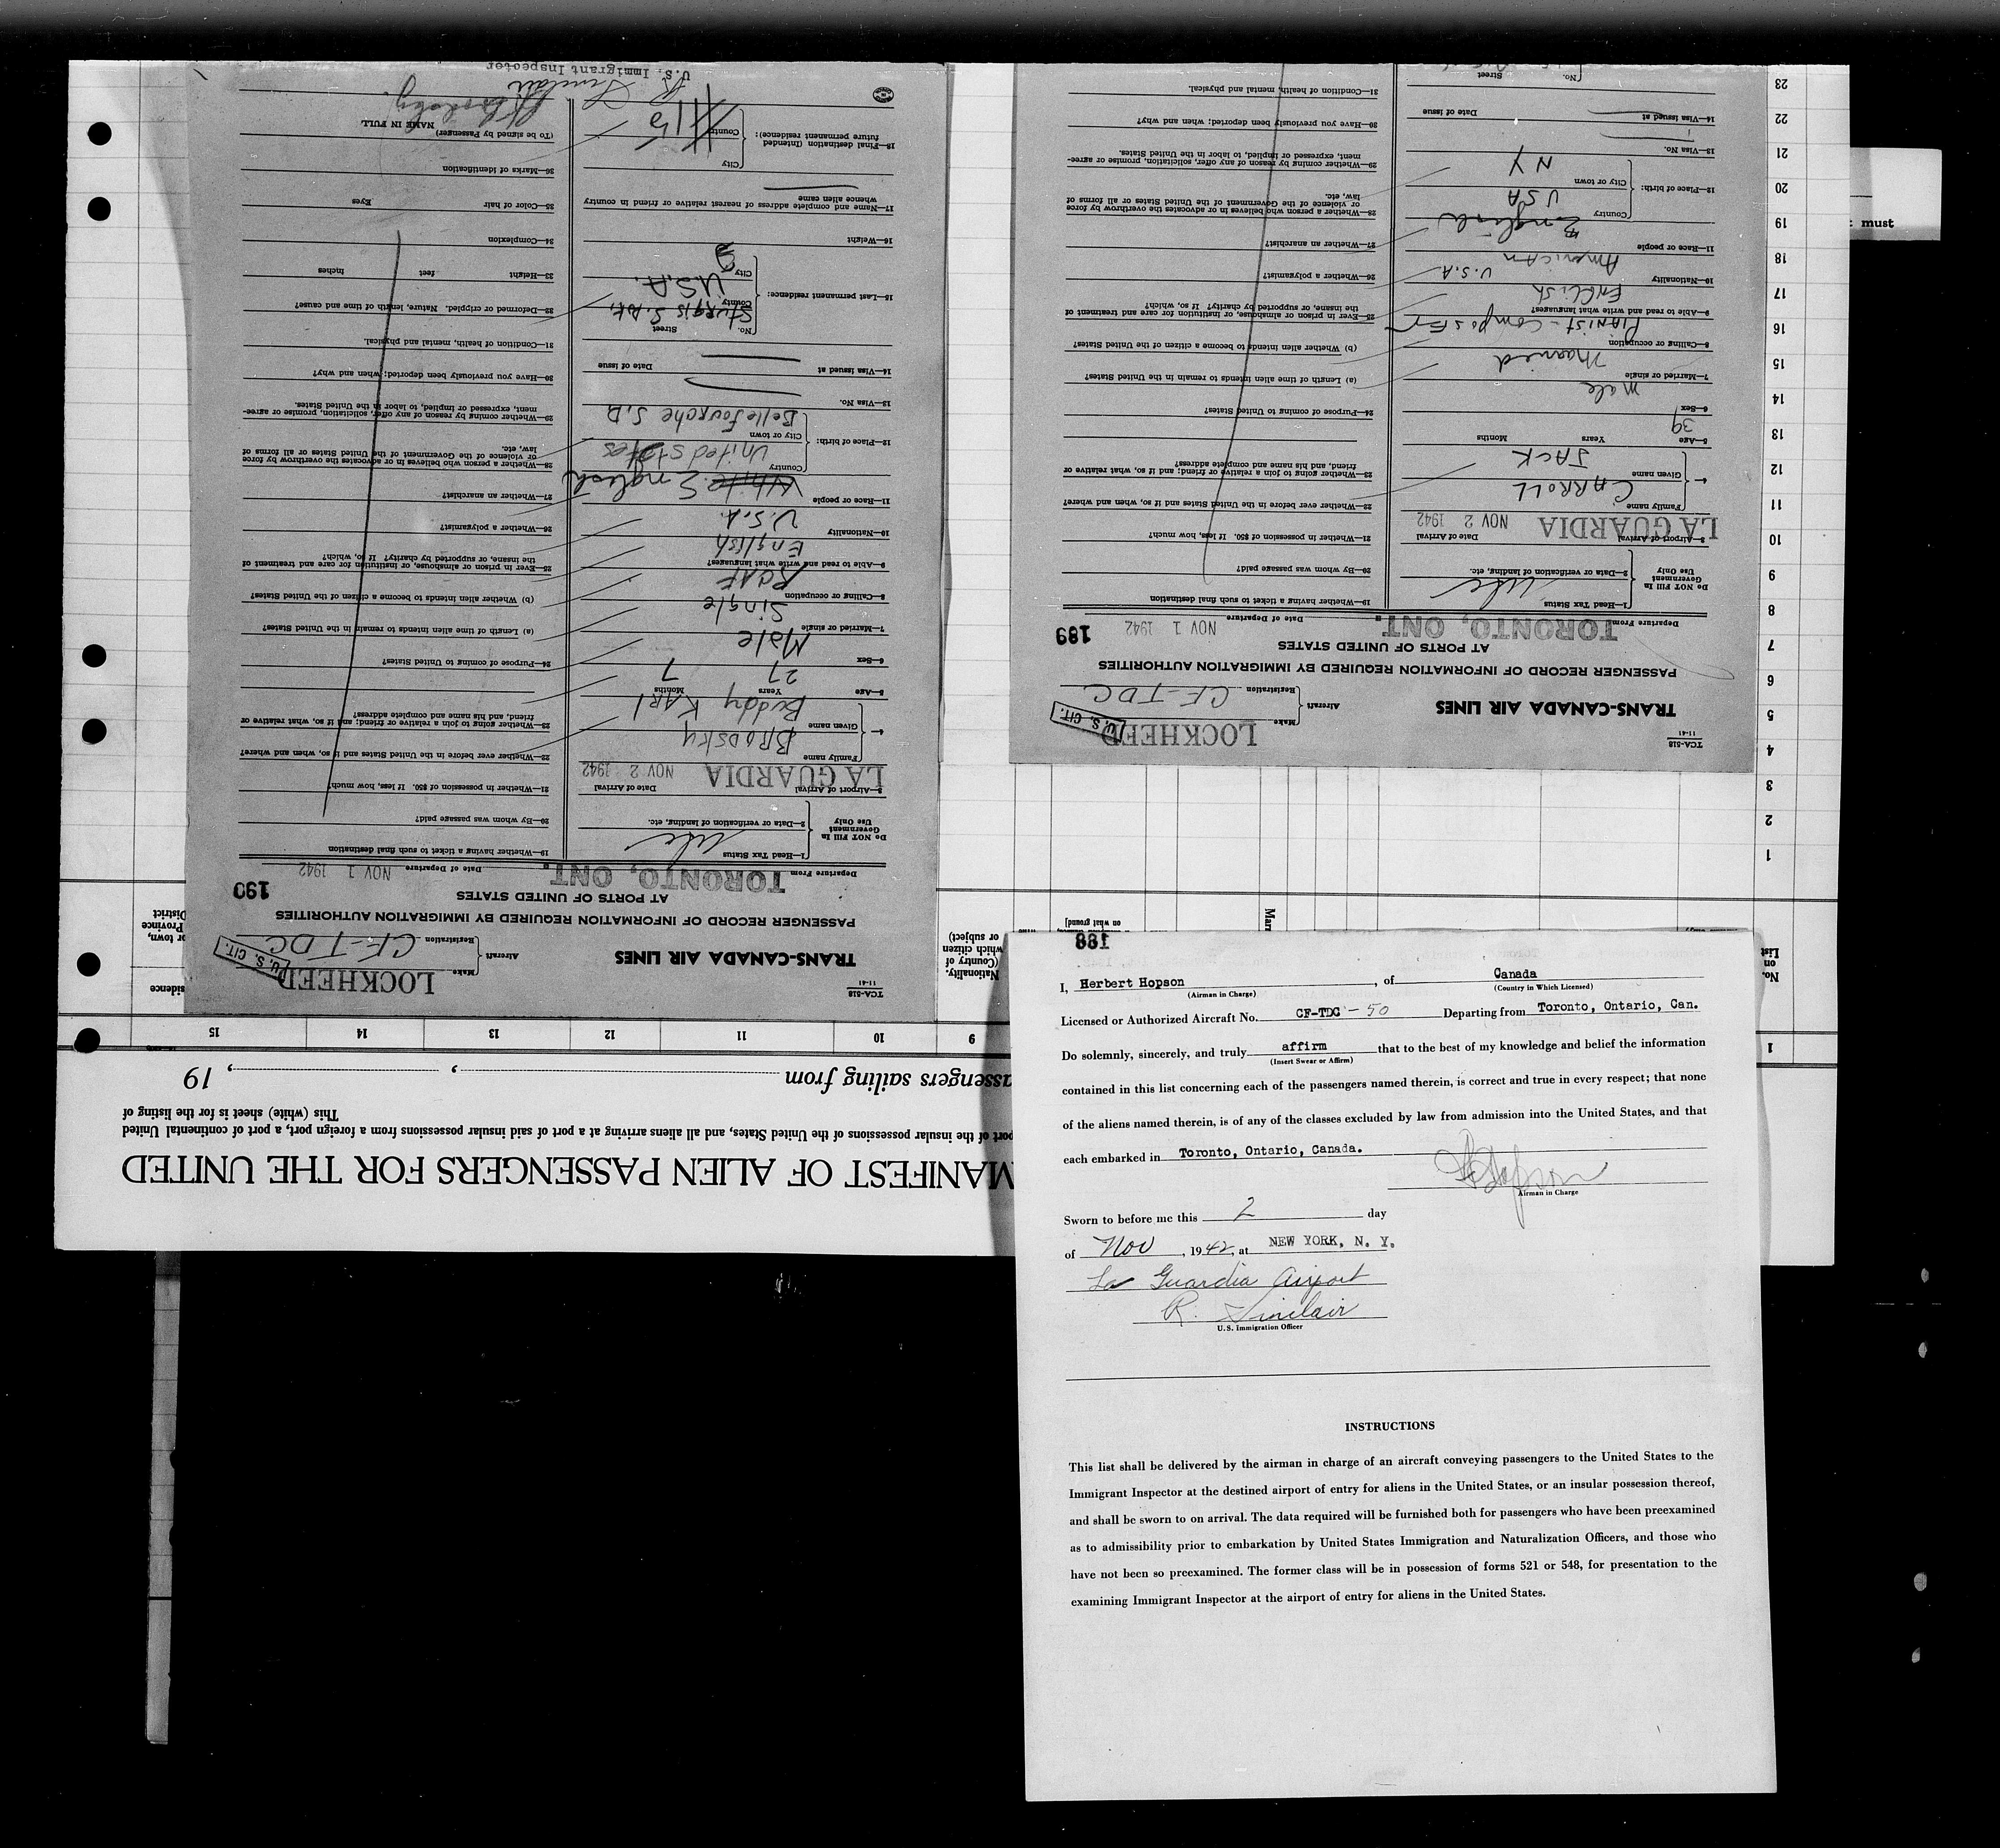 188
I, Herbert Hopson, of Canada
(Airman in Charge) (Country in Which Licensed)
Licensed or Authorized Aircraft No. CF-TDC - 50 Departing from Toronto, Ontario, Can.
Do solemnly, sincerely, and truly affirm that to the best of my knowledge and belief the information
(Insert Swear or Affirm)
contained in this list concerning each of the passengers named therein, is correct and true in every respect; that none
of the aliens named therein, is of any of the classes excluded by law from admission into the United States, and that
each embarked in Toronto, Ontario, Canada.
Hopson
Airman in Charge
Sworn to before me this 2 day
of Nov, 1942, at NEW YORK, N. Y.
La Guardia Airport
R. Sinclair
U.S. Immigration Officer
INSTRUCTIONS
This list shall be delivered by the airman in charge of an aircraft conveying passengers to the United States to the
Immigrant Inspector at the destined airport of entry for aliens in the United States, or an insular possession thereof,
and shall be sworn to on arrival. The data required will be furnished both for passengers who have been preexamined
as to admissibility prior to embarkation by United States Immigration and Naturalization Officers, and those who
have not been so preexamined. The former class will be in possession of forms 521 or 548, for presentation to the
examining Immigrant Inspector at the airport of entry for aliens in the United States.
TCA-518
11-41
TRANS-CANADA AIR LINES
Aircraft Make LOCKHEED
Registration CF-TDC
U. S. CIT.
PASSENGER RECORD OF INFORMATION REQUIRED BY IMMIGRATION AUTHORITIES
AT PORTS OF UNITED STATES
189
Departure From TORONTO, ONT. Date of Departure NOV 1 1942
Do NOT Fill In Government Use Only
1—Head Tax Status USC
2—Data or verification of landing, etc.
3—Airport of Arrival LA GUARDIA Date of Arrival NOV 2 1942
4 Family name CARROLL
Given name JACK
5—Age 39 Years Months
6—Sex Male
7—Married or single Married
8—Calling or occupation PIANIST - COMPOSER
9—Able to read and write what languages? ENGLISH
10—Nationality AMERICAN U.S.A.
11—Race or people English
12—Place of birth: Country USA
City or town NY
13—Visa No.
14—Visa issued at Date of issue
No. Street
19—Whether having a ticket to such final destination
20—By whom was passage paid?
21—Whether in possession of $50. If less, how much?
22—Whether ever before in the United States and if so, when and where?
23—Whether going to join a relative or friend; and if so, what relative or
friend, and his name and complete address?
24—Purpose of coming to United States?
(a) Length of time alien intends to remain in the United States?
(b) Whether alien intends to become a citizen of the United States?
25—Ever in prison or almshouse, or institution for care and treatment of
the insane, or supported by charity? If so, which?
26—Whether a polygamist?
27—Whether an anarchist?
28—Whether a person who believes in or advocates the overthrow by force
or violence of the Government of the United States or all forms of
law, etc.
29—Whether coming by reason of any offer, solicitation, promise or agree-
ment, expressed or implied, to labor in the United States.
30—Have you previously been deported; when and why?
31—Condition of health, mental and physical.
TCA-518
11-41
TRANS-CANADA AIR LINES
Aircraft Make LOCKHEED
Registration CF-TDC
U. S. CIT.
PASSENGER RECORD OF INFORMATION REQUIRED BY IMMIGRATION AUTHORITIES
AT PORTS OF UNITED STATES
190
Departure From TORONTO, ONT. Date of Departure NOV 1 1942
Do NOT Fill In Government Use Only
1—Head Tax Status USC
2—Data or verification of landing, etc.
3—Airport of Arrival LA GUARDIA Date of Arrival NOV 2 1942
4 Family name BRODSKY
Given name Buddy KARl
5—Age 27 Years 7 Months
6—Sex Male
7—Married or single Single
8—Calling or occupation RCAF
9—Able to read and write what languages? English
10—Nationality U.S.A.
11—Race or people White English
12—Place of birth: Country United States
City or town Belle Fourche S.D
13—Visa No.
14—Visa issued at Date of issue
15—Last permanent residence: No. Street
County Sturgis S. Dk.
City U.S.A.
16—Weight
17—Name and complete address of nearest relative or friend in country
whence alien came
18—Final destination (Intended future permanent residence): City
County
19—Whether having a ticket to such final destination
20—By whom was passage paid?
21—Whether in possession of $50. If less, how much?
22—Whether ever before in the United States and if so, when and where?
23—Whether going to join a relative or friend; and if so, what relative or
friend, and his name and complete address?
24—Purpose of coming to United States?
(a) Length of time alien intends to remain in the United States?
(b) Whether alien intends to become a citizen of the United States?
25—Ever in prison or almshouse, or institution for care and treatment of
the insane, or supported by charity? If so, which?
26—Whether a polygamist?
27—Whether an anarchist?
28—Whether a person who believes in or advocates the overthrow by force
or violence of the Government of the United States or all forms of
law, etc.
29—Whether coming by reason of any offer, solicitation, promise or agree-
ment, expressed or implied, to labor in the United States.
30—Have you previously been deported; when and why?
31—Condition of health, mental and physical.
32—Deformed or crippled. Nature, length of time and cause?
33—Height feet inches
34—Complexion
35—Color of hair Eyes
36—Marks of identification
(To be signed by Passenger) NAME IN FULL
Brodsky.
R Sinclair
U.S. Immigrant Inspector
MANIFEST OF ALIEN PASSENGERS FOR THE UNITED
port of the insular possessions of the United States, and all aliens arriving at a port of said insular possessions from a foreign port, a port of continental United
This (white) sheet is for the listing of
assengers sailing from , , 19
1 9 10 11 12 13 14 15
No. on List
Nationality. (Country of which citizen or subject)
on what ground]
sidence
or town, Province District
1
2
3
4
5
6
7
8
9
10
11
12
13
14
15
16
17
18
19
20
21
22
23
must